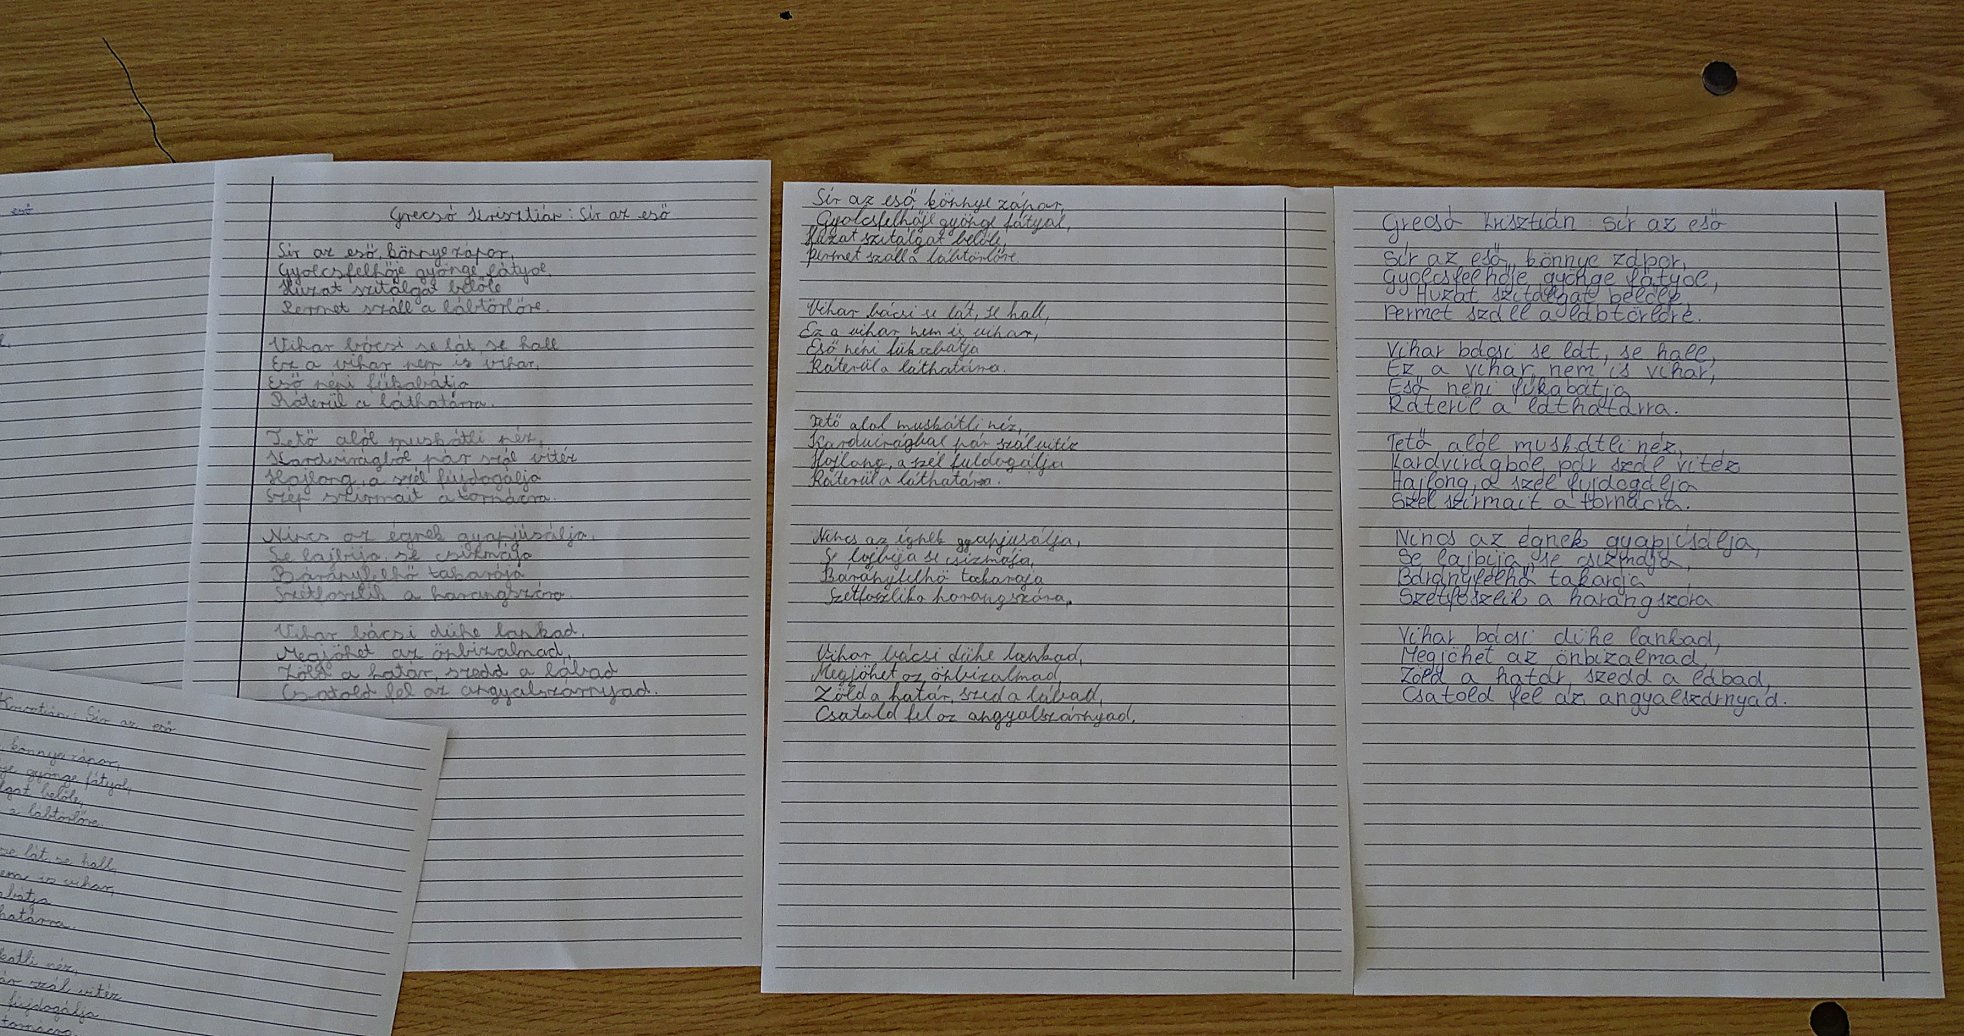 eső
Grecsó Krisztián: Sír az eső
Sír az eső, könnye zápor,
Gyolcsfelhője gyönge fátyol,
Huzat szitálgat belőle
Permet száll a lábtörlőre.
Vihar bácsi se lát, se hall
Ez a vihar nem is vihar,
Eső néni fűkabátja
Ráterül a láthatárra.
Tető alól muskátli néz,
Kardvirágból pár szál vitéz
Hajlong, a szél fújdogálja
Szép szirmait a tornácra.
Nincs az égnek gyapjúsálja,
Se lajbija, se csizmája
Bárányfelhő takarója
Szétfoszlik a harangszóra.
Vihar bácsi dühe lankad,
Megjöhet az önbizalmad,
Zöld a határ, szedd a lábad
Csatold fel az angyalszárnyad.
Krisztián: Sír az eső
könnye zápor,
je gyönge fátyol,
lgat belőle,
a lábtörlőre.
se lát, se hall,
em is vihar,
abátja
határra.
kátli néz,
ár szál vitéz
fújdogálja
tornácra.
Sír az eső, könnye zápor,
Gyolcsfelhője gyönge fátyol,
Huzat szitálgat belőle,
Permet száll a lábtörlőre.
Vihar bácsi se lát, se hall,
Ez a vihar nem is vihar,
Eső néni fűkabátja
Ráterül a láthatárra.
Tető alol muskátli néz,
Kardvirágbal pár szál vitéz
Hajlong, a szél fuldogálja
Ráterül a láthatárra.
Nincs az égnek gyapjusálja,
Se lajbija se csizmája,
Bárányfelhő takaraja
Szétfoszlika harangszóra.
Vihar bácsi dühe lankad,
Megjöhet az önbizalmad,
Zöld a határ, szed a lábad,
Csatald fel az angyalszárnyad.
Grecsó Krisztián: Sír az eső
Sír az eső, könnye zápor,
Gyolcsfelhője gyönge fátyol,
Huzat szitálgat belőle,
Permet száll a lábtörlőre.
Vihar bácsi se lát, se hall,
Ez a vihar, nem is vihar,
Eső néni fűkabátja
Ráterül a láthatárra.
Tető alól muskátli néz,
Kardvirágból pár szál vitéz
Hajlong, a szél fujdogálja
Szél szirmait a tornácra.
Nincs az égnek gyapjúsálja,
Se lajbija, se csizmája,
Bárányfelhő takarója
Szétfoszlik a harangszóra.
Vihar bácsi dühe lankad,
Megjöhet az önbizalmad,
Zöld a határ, szedd a lábad,
Csatold fel az angyalszárnyad.